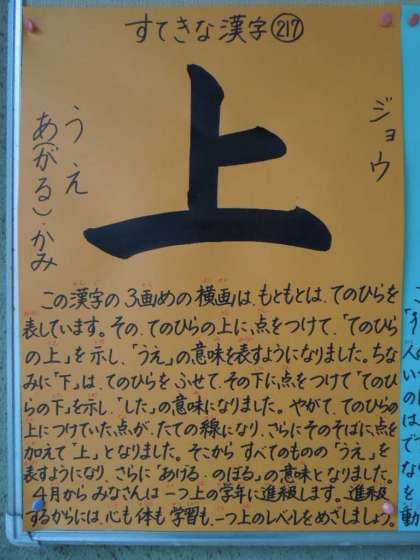 すてきな漢字 217
上
ジョウ
うえ
あ(がる)
かみ
この漢字の3画めの横画は、もともとは、てのひらを
表しています。その、てのひらの上に、点をつけて、「てのひら
の上」を示し、「うえ」の意味を表すようになりました。ちな
みに「下」は、てのひらをふせて、その下に点をつけて「てのひ
らの下」を示し、「した」の意味になりました。やがて、てのひらの
上につけていた点が、たての線になり、さらにそのそばに点を
加えて「上」となりました。そこからすべてのものの「うえ」を
表すようになり、さらに「あげる、のぼる」の意味となりました。
4月からみなさんは一つ上の学年に進級します。進級
するからには、心も体も学習も、一つ上のレベルをめざしましょう。